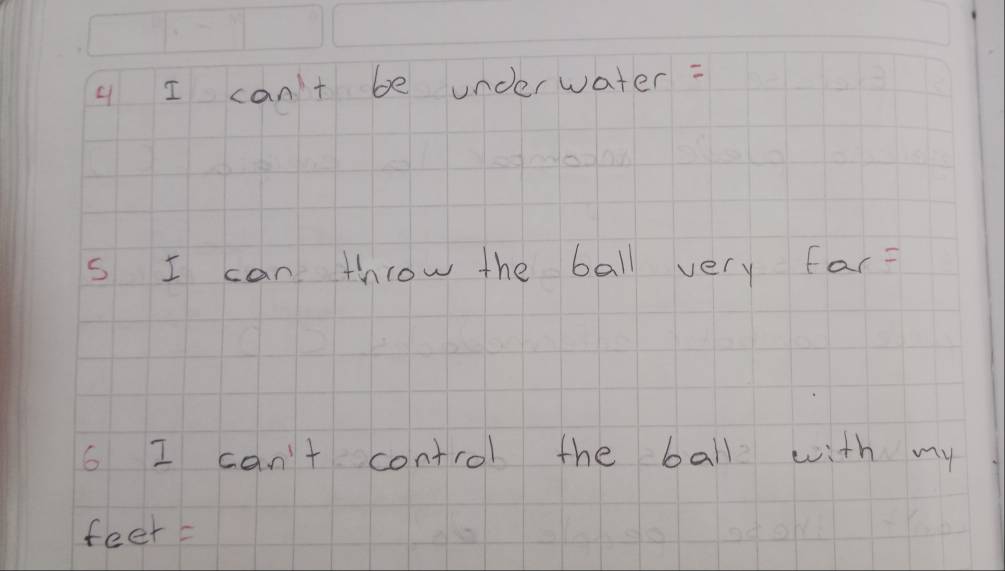 4 I can't be underwater =
5 I can throw the ball very far =
6 I can't control the ball with my
feet =